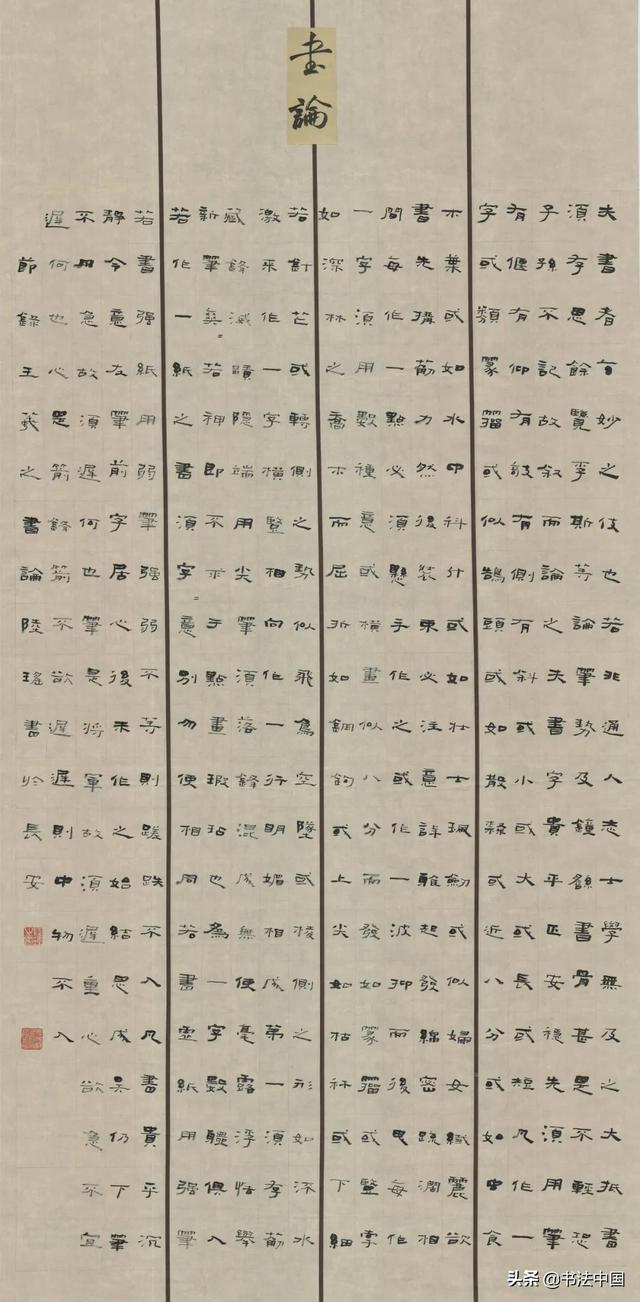 書論
夫書者玄妙之伎也若非通人志士學無及之大抵書
須存思餘覽李斯等論筆勢及鐘繇書骨甚是不輕恐
子孫不記故敘而論之夫書字貴平正安穩先須用筆
有偃有仰有攲有側有斜或小或大或長或短凡作一
字或類篆籀或似鵠頭或如散隸或近八分或如虫食
木葉或如水中科斗或如壯士珮劒或似婦女纖麗欲
書先構筋力然後裝束必注意詳雅起發綿密疏濶相
間每作一點必須懸手作之或作一波抑而後曳每作
一字須用數種意或橫畫似八分而發如篆籀或豎字
如深林之喬木而屈折如鋼鉤或上尖如枯稈或下細
若針芒或轉側之勢似飛鳥空墜或棱側之形如流水
激來作一字橫豎相向作一行明媚相成第一須存筋
藏鋒滅蹟隱端用尖筆須落鋒混成無使毫露浮怯舉
新筆爽=若神即不求于點畫瑕玷也為一字數軆俱入
若作一紙之書須字=意別勿使相同若書虛紙用強筆
若書强紙用弱筆强弱不等則蹉跌不入凡書貴乎沉
靜令意在筆前字居心後未作之始結思成矣仍下筆
不用急故須遲何也筆是將軍故須遲重心欲急不宜
遲何也心是箭鋒箭不欲遲遲則中物不入
節錄王羲之書論陸瑤書於長安
头条 @书法中国